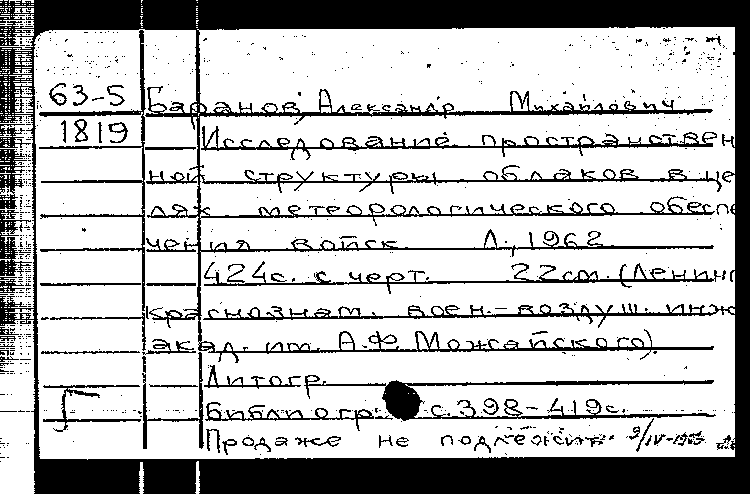 63-5 Баранов, Александр Михайлович
1819 Исследование пространствен
ной структуры облаков в це
лях метеорологического обеспе
чения войск. Л., 1962
424с. с черт. 22см. (Ленинг
краснознам. воен.-воздуш. инж
акад. им. А.Ф. Можайского).
Литогр.
Библиогр: с.398-419с.
Продаже не подлежит.